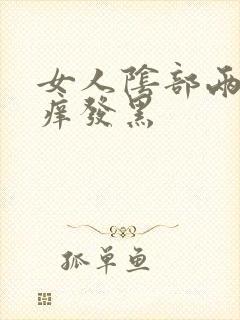 女人陰部兩
痒發黑
孤单鱼